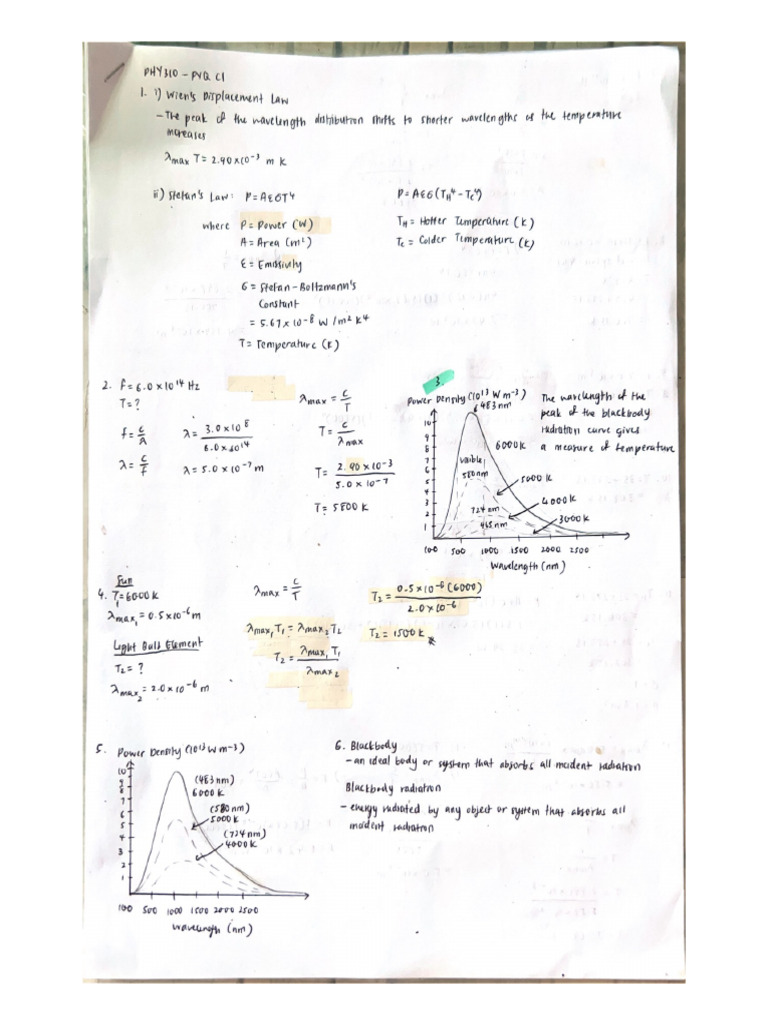 PHY310 - PYQ C1
1. i) Wien's Displacement Law
- The peak of the wavelength distribution shifts to shorter wavelengths as the temperature
increases
λmax T = 2.90x10-3 m K
ii) Stefan's Law: P = AεσT4
P = Aεσ(TH4 - TC4)
where P = Power (W)
A = Area (m2)
ε = Emissivity
σ = Stefan-Boltzmann's
Constant
= 5.67x10-8 W/m2 K4
T = Temperature (K)
TH = Hotter Temperature (K)
TC = Colder Temperature (K)
2. f = 6.0x10 14 Hz
T = ?
f = c/λ
λ = c/f
λ = 3.0x10 8 / 6.0x10 14
λ = 5.0x10-7 m
λmax = c/T
T = c/λmax
T = 2.90x10-3 / 5.0x10-7
T = 5800 K
3.
Power Density (10 13 W m-3)
483 nm
6000K
visible
580nm
5000K
724nm
4000K
465nm
3000K
10
9
8
7
6
5
4
3
2
1
100 500 1000 1500 2000 2500
Wavelength (nm)
The wavelength of the
peak of the blackbody
radiation curve gives
a measure of temperature
4. Sun
T1 = 6000K
λmax1 = 0.5x10-6 m
Light Bulb Element
T2 = ?
λmax2 = 2.0x10-6 m
λmax = c/T
λmax1 T1 = λmax2 T2
T2 = λmax1 T1 / λmax2
T2 = 0.5x10-6 (6000) / 2.0x10-6
T2 = 1500K
5. Power Density (10 13 W m-3)
(483 nm)
6000K
(580nm)
5000K
(724nm)
4000K
10
9
8
7
6
5
4
3
2
1
100 500 1000 1500 2000 2500
Wavelength (nm)
6. Blackbody
- an ideal body or system that absorbs all incident radiation
Blackbody radiation
- energy radiated by any object or system that absorbs all
incident radiation